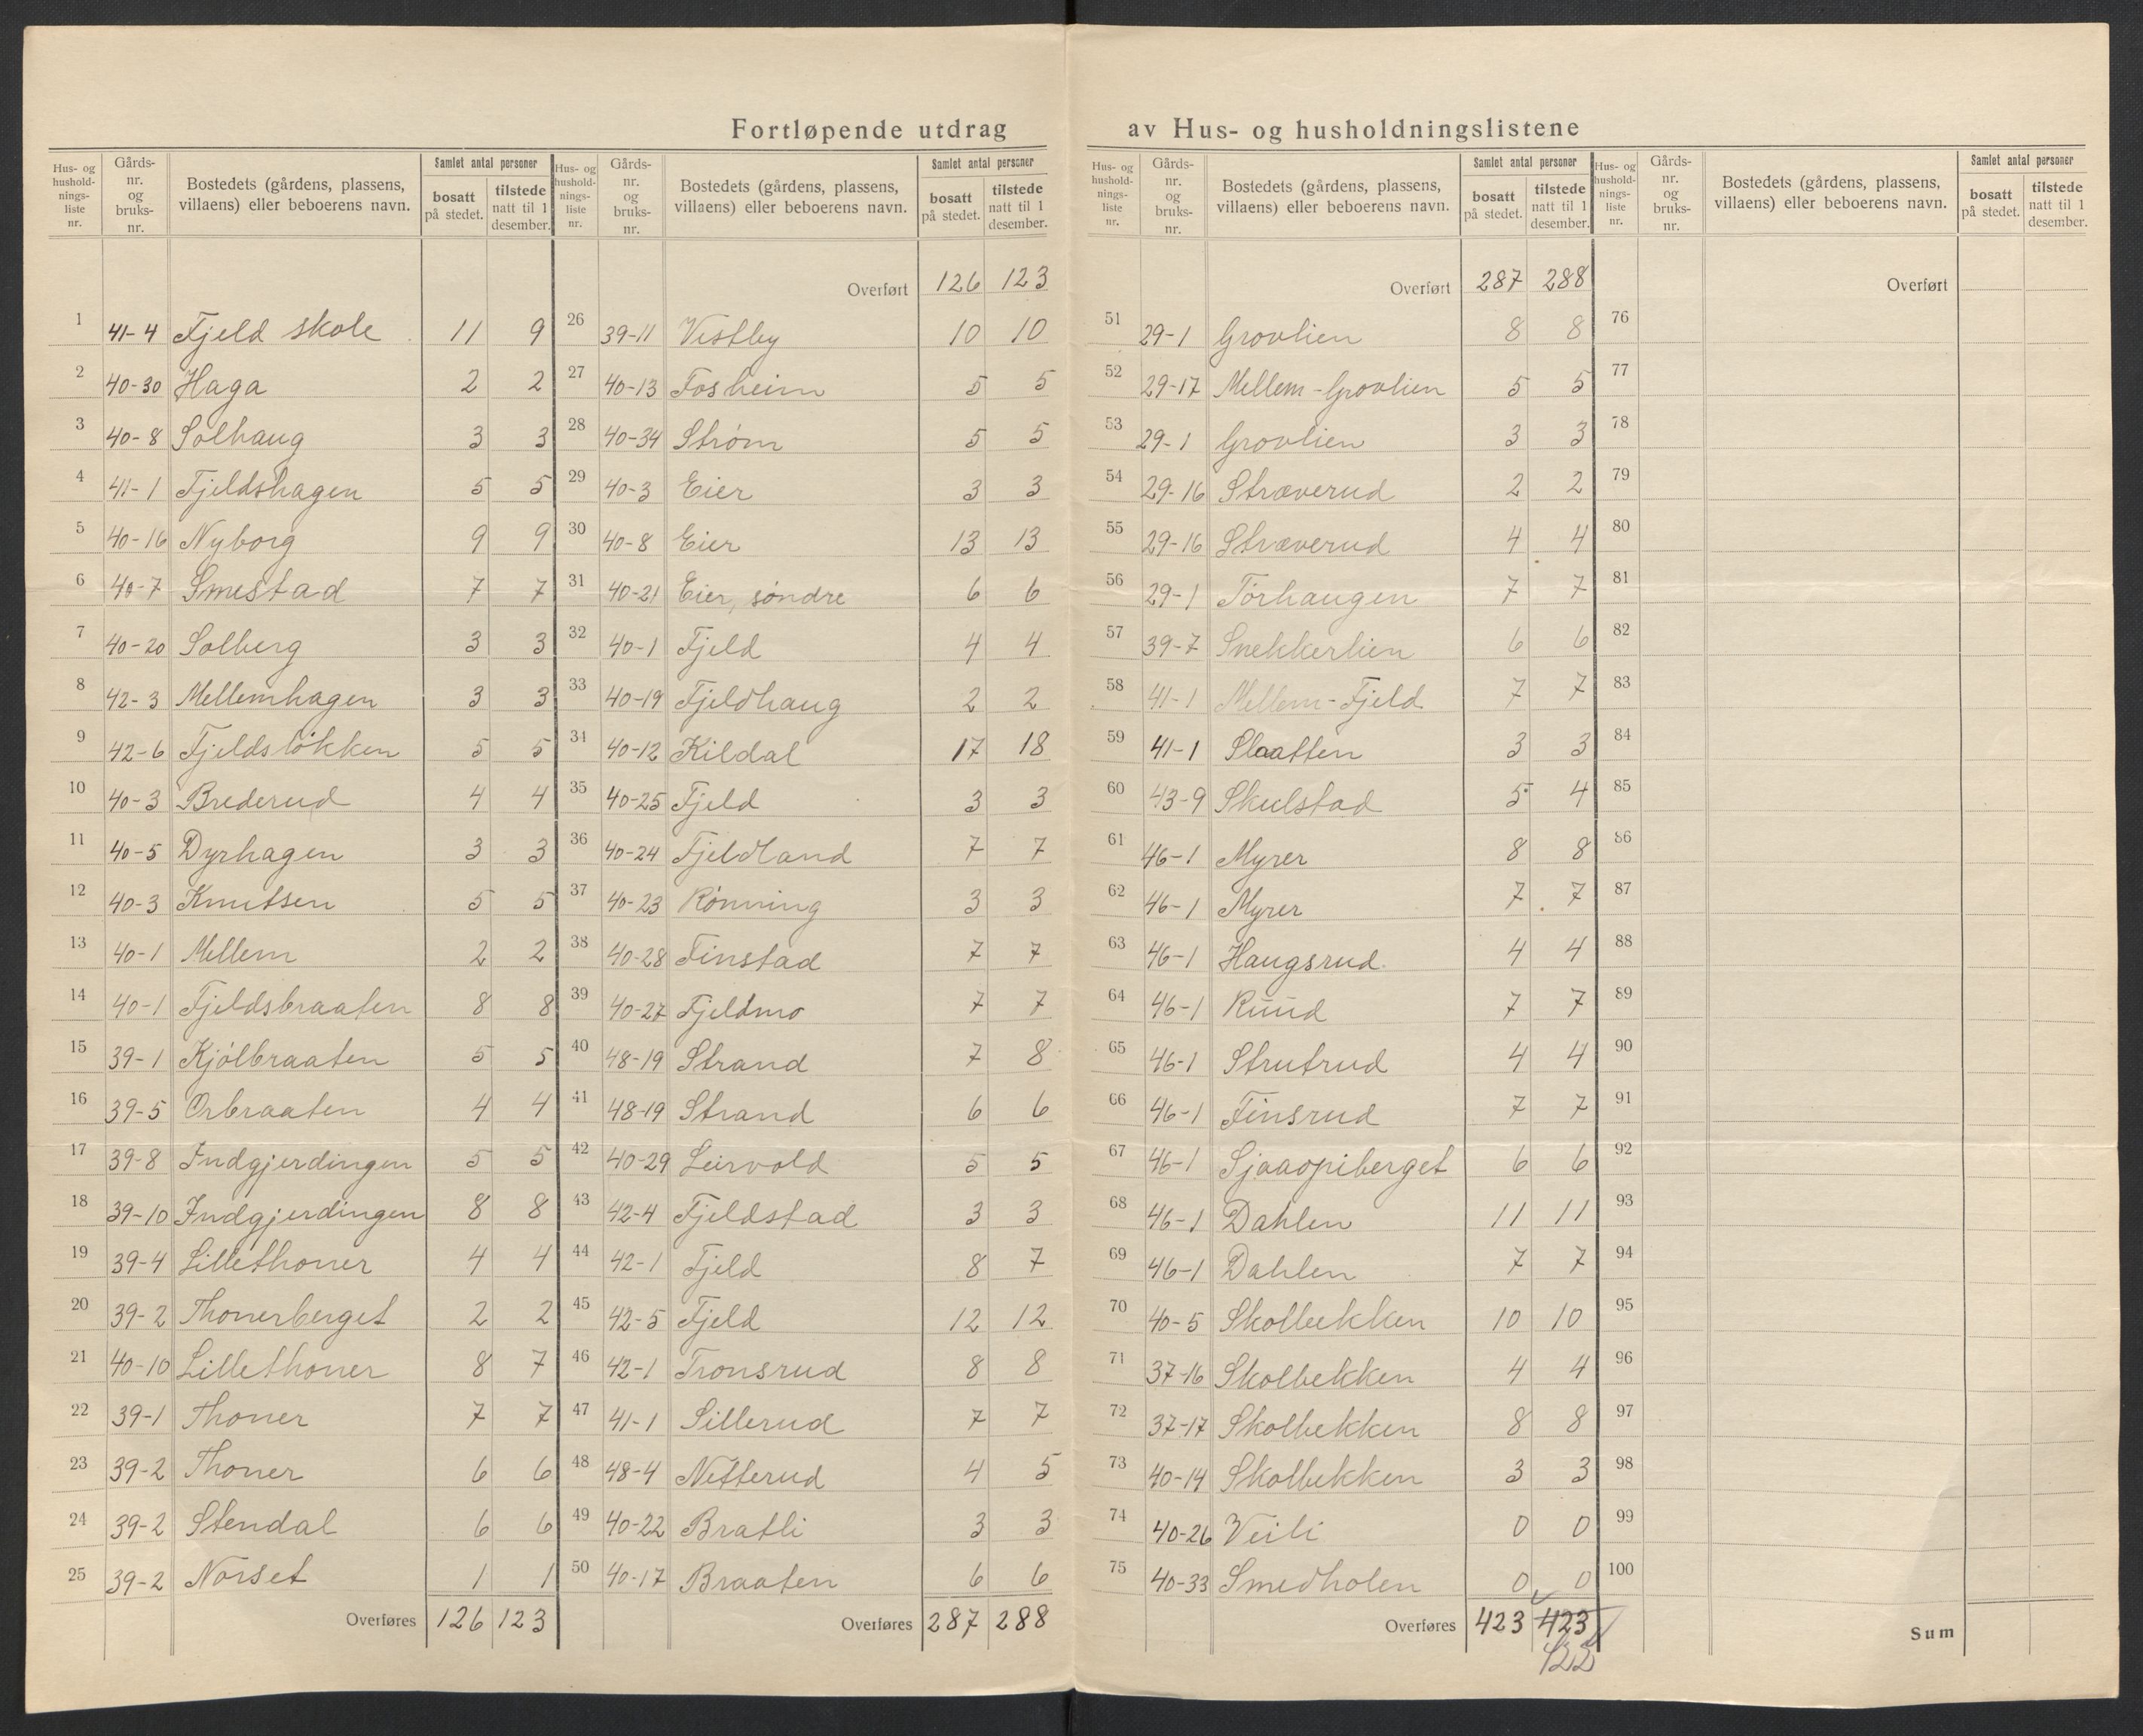 Fortløpende utdrag av Hus- og husholdningslistene
Hus- og hushold- nings- liste nr. | Gårds- nr. og bruks- nr. | Bostedets (gårdens, plassens, villaens) eller beboerens navn. | Samlet antal personer | bosatt på stedet. | tilstede natt til 1 desember.
1 41-4 Fjeld skole 11 9
2 40-30 Haga 2 2
3 40-8 Solhaug 3 3
4 41-1 Fjeldshagen 5 5
5 40-16 Nyborg 9 9
6 40-7 Smestad 7 7
7 40-20 Solberg 3 3
8 42-3 Mellemhagen 3 3
9 42-6 Fjeldsløkken 5 5
10 40-3 Brederud 4 4
11 40-5 Dyrhagen 3 3
12 40-3 Knutsen 5 5
13 40-1 Mellem 2 2
14 40-1 Fjeldsbraaten 8 8
15 39-1 Kjølbraaten 5 5
16 39-5 Orbraaten 4 4
17 39-8 Indgjerdingen 5 5
18 39-10 Indgjerdingen 8 8
19 39-4 Lillethoner 4 4
20 39-2 Thonerberget 2 2
21 40-10 Lillethoner 8 7
22 39-1 Thoner 7 7
23 39-2 Thoner 6 6
24 39-2 Stendal 6 6
25 39-2 Norset 1 1
Overføres 126 123
Hus- og hushold- nings- liste nr. | Gårds- nr. og bruks- nr. | Bostedets (gårdens, plassens, villaens) eller beboerens navn. | Samlet antal personer | bosatt på stedet. | tilstede natt til 1 desember.
Overført 126 123
26 39-11 Vestby 10 10
27 40-13 Fosheim 5 5
28 40-34 Strøm 5 5
29 40-3 Eier 3 3
30 40-8 Eier 13 13
31 40-21 Eier, søndre 6 6
32 40-1 Fjeld 4 4
33 40-19 Fjeldhaug 2 2
34 40-12 Kildal 17 18
35 40-25 Fjeld 3 3
36 40-24 Fjeldland 7 7
37 40-23 Rønning 3 3
38 40-28 Finstad 7 7
39 40-27 Fjeldmo 7 7
40 48-19 Strand 7 8
41 48-19 Strand 6 6
42 40-29 Leirvold 5 5
43 42-4 Fjeldstad 3 3
44 42-1 Fjeld 8 7
45 42-5 Fjeld 12 12
46 42-1 Tronsrud 8 8
47 41-1 Sillerud 7 7
48 48-4 Netterud 4 5
49 40-22 Bratli 3 3
50 40-17 Braaten 6 6
Overføres 287 288
Hus- og hushold- nings- liste nr. | Gårds- nr. og bruks- nr. | Bostedets (gårdens, plassens, villaens) eller beboerens navn. | Samlet antal personer | bosatt på stedet. | tilstede natt til 1 desember.
Overført 287 288
51 29-1 Grovlien 8 8
52 29-17 Mellem-Grovlien 5 5
53 29-1 Grovlien 3 3
54 29-16 Stræverud 2 2
55 29-16 Stræverud 4 4
56 29-1 Tørhaugen 7 7
57 39-7 Snekkerlien 6 6
58 41-1 Mellem-Fjeld 7 7
59 41-1 Slaatten 3 3
60 43-9 Skulstad 5 4
61 46-1 Myrer 8 8
62 46-1 Myrer 7 7
63 46-1 Haugsrud 4 4
64 46-1 Ruud 7 7
65 46-1 Strutrud 4 4
66 46-1 Finsrud 7 7
67 46-1 Sjaapiberget 6 6
68 46-1 Dahlen 11 11
69 46-1 Dahlen 7 7
70 40-5 Skolbekken 10 10
71 37-16 Skolbekken 4 4
72 37-17 Skolbekken 8 8
73 40-14 Skolbekken 3 3
74 40-26 Veili 0 0
75 40-33 Smedholen 0 0
Overføres 423 423
422
Hus- og hushold- nings- liste nr. | Gårds- nr. og bruks- nr. | Bostedets (gårdens, plassens, villaens) eller beboerens navn. | Samlet antal personer | bosatt på stedet. | tilstede natt til 1 desember.
Overført
76
77
78
79
80
81
82
83
84
85
86
87
88
89
90
91
92
93
94
95
96
97
98
99
100
Sum